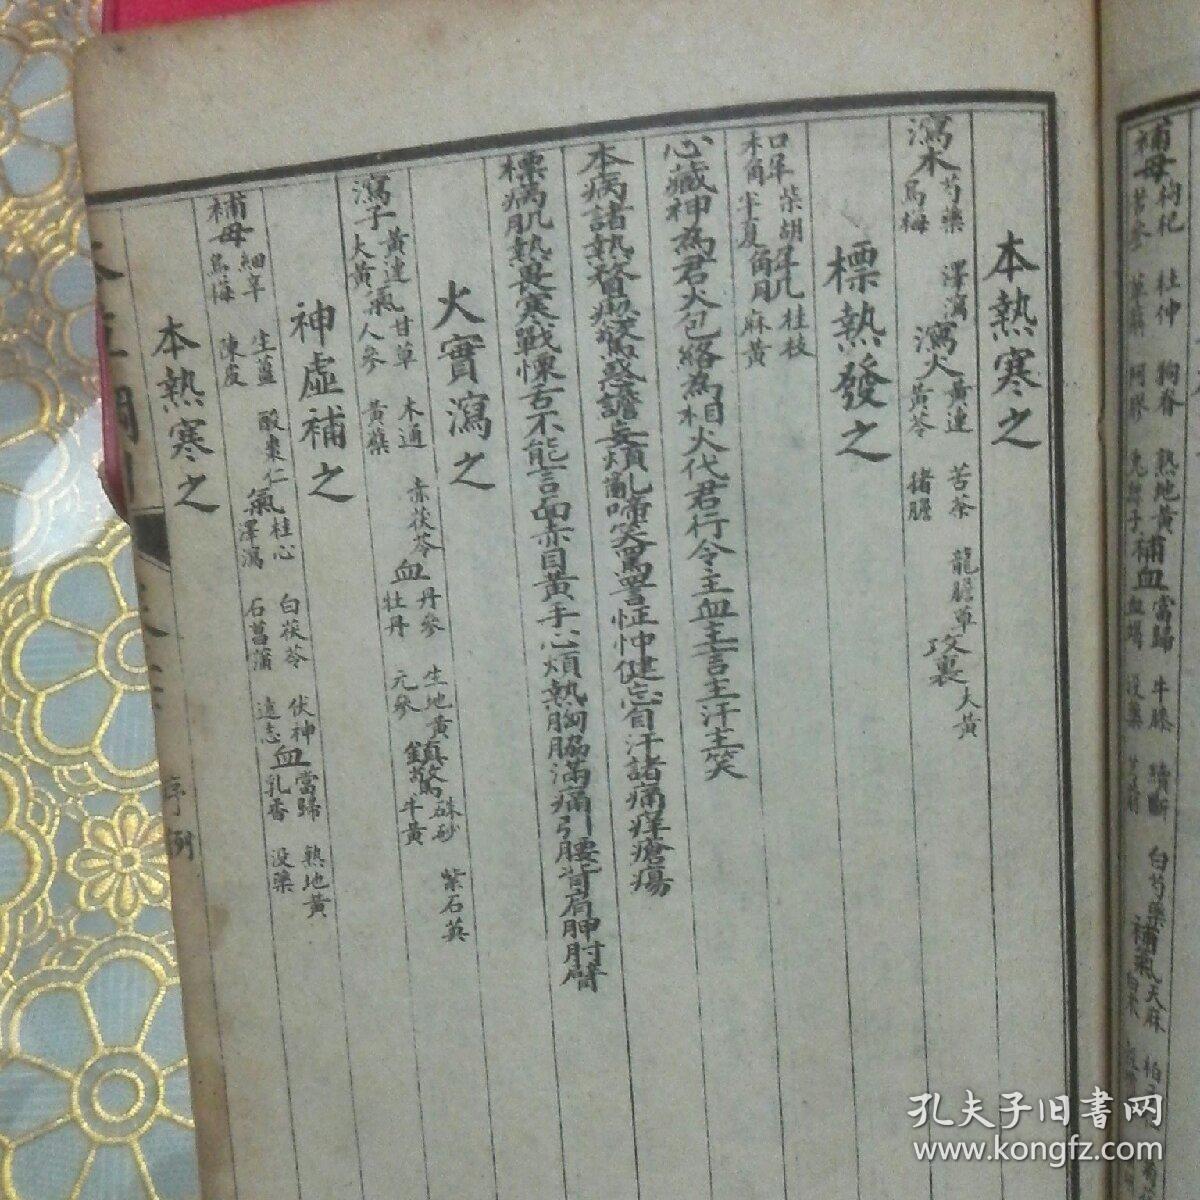 補母枸杞 杜仲 狗脊 熟地黃 補血當歸 牛膝 續斷 白芍藥 補氣天麻
苦參 阿膠 沒藥
本熱寒之
瀉木芍藥 烏梅 澤瀉 瀉火黃連 黃芩 苦茶 猪膽 龍膽草 攻裏大黃
標熱發之
和解柴胡 半夏 桂枝 麻黃
心藏神為君火包絡為相火代君行令主血主言主汗主笑
本病諸熱瞀瘛驚惑譫妄煩亂啼笑罵詈怔忡健忘自汗諸痛痒瘡瘍
標病肌熱畏寒戰慄舌不能言面赤目黃手心煩熱胸脇滿痛引腰背肩胛肘臂
火實瀉之
瀉子黃連 大黃 氣甘草 人參 木通 黃蘗 赤茯苓 血丹參 牡丹 生地黃 元參 鎮驚硃砂 牛黃 紫石英
神虛補之
補母細辛 烏梅 生薑 陳皮 酸棗仁 氣桂心 澤瀉 白茯苓 石菖蒲 伏神 遠志 血當歸 乳香 熟地黃 沒藥
本熱寒之
本草綱目
序例
孔夫子旧书网
www.kongfz.com